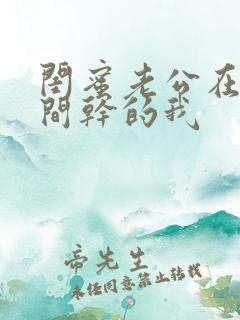 閨蜜老公在
間幹的我
帝先生
未經同意禁止轉載